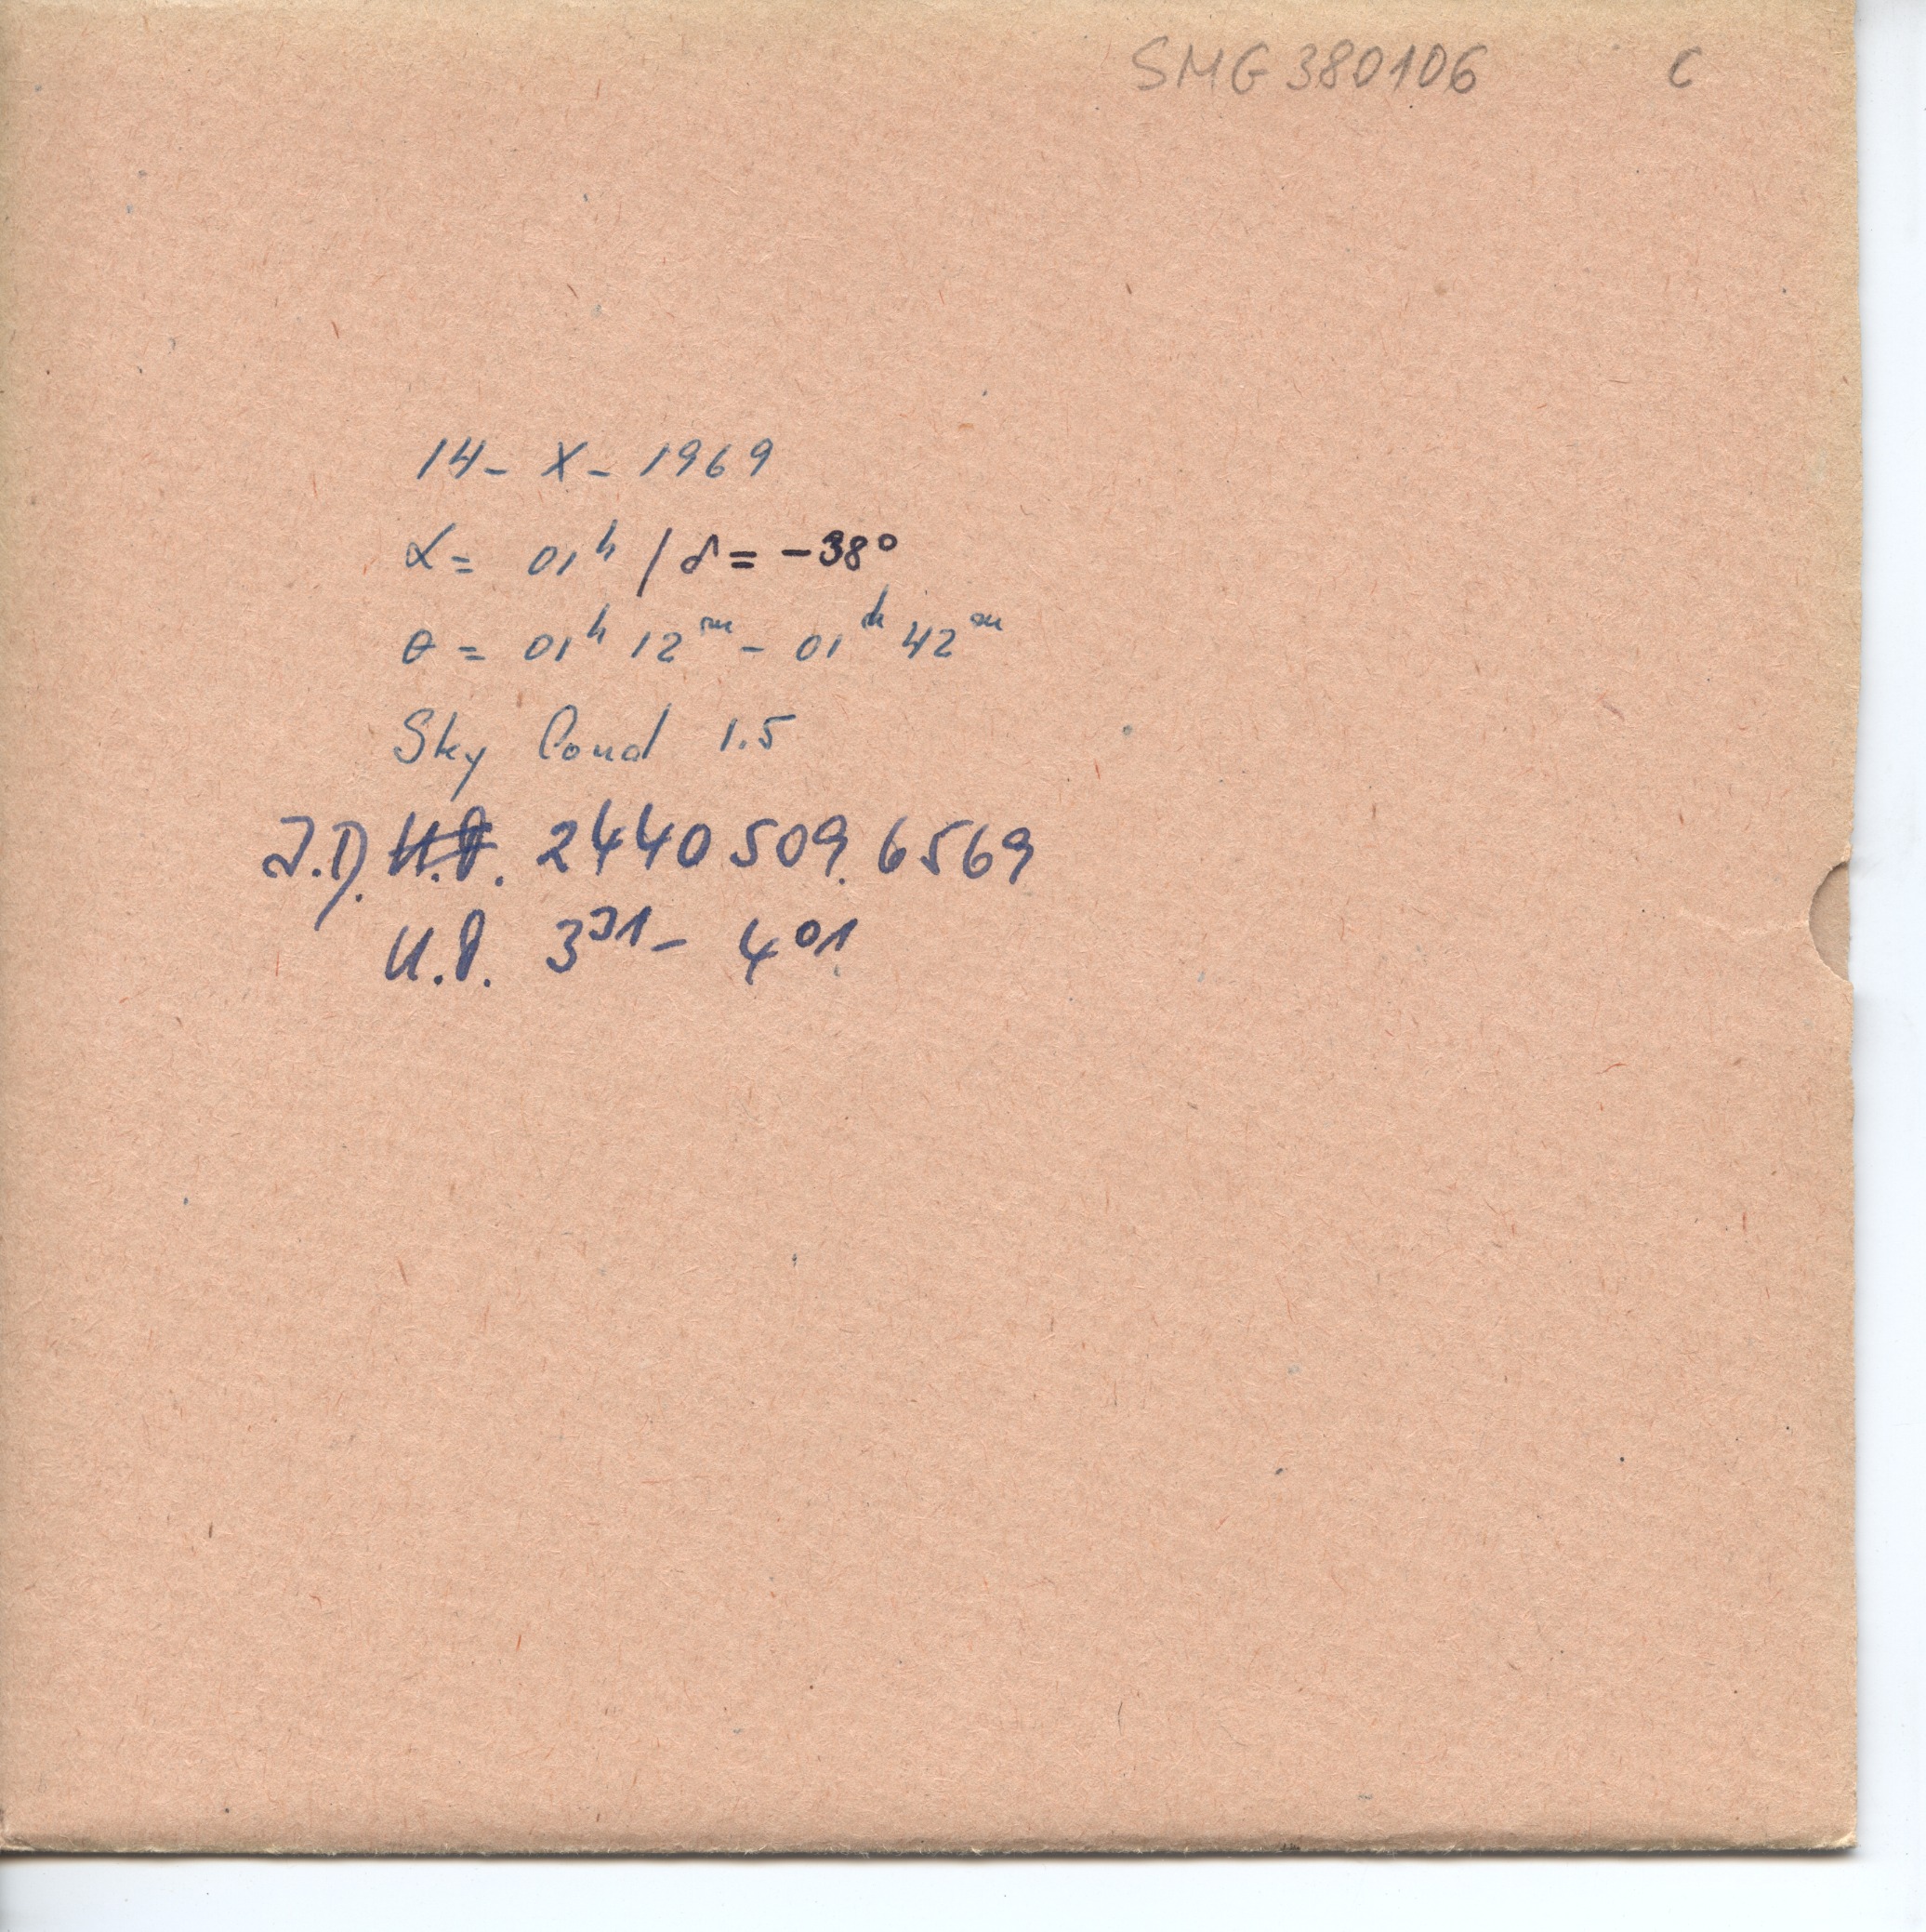 SMG 380106 C
14 - X - 1969
α = 01ʰ / δ = -38°
θ = 01ʰ 12ᵐ - 01ʰ 42ᵐ
Sky Cond 1.5
J.D. U.T. 2440509.6569
U.T. 3³¹ - 4⁰¹